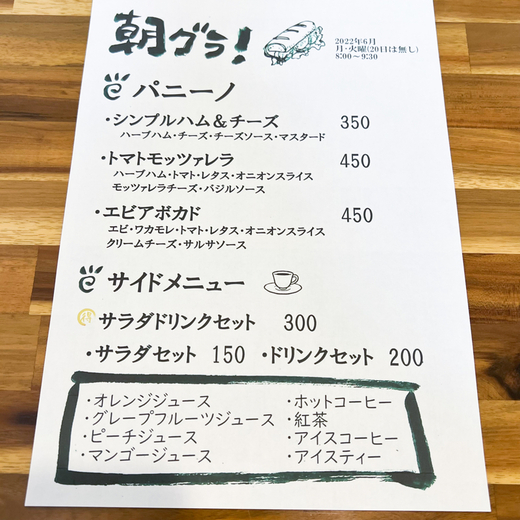 朝グラ!
2022年6月
月・火曜(20日は無し)
8:00〜9:30
パニーノ
・シンプルハム&チーズ 350
ハーブハム・チーズ・チーズソース・マスタード
・トマトモッツァレラ 450
ハーブハム・トマト・レタス・オニオンスライス
モッツァレラチーズ・バジルソース
・エビアボカド 450
エビ・ワカモレ・トマト・レタス・オニオンスライス
クリームチーズ・サルサソース
サイドメニュー
得 サラダドリンクセット 300
・サラダセット 150 ・ドリンクセット 200
・オレンジジュース ・ホットコーヒー
・グレープフルーツジュース ・紅茶
・ピーチジュース ・アイスコーヒー
・マンゴージュース ・アイスティー